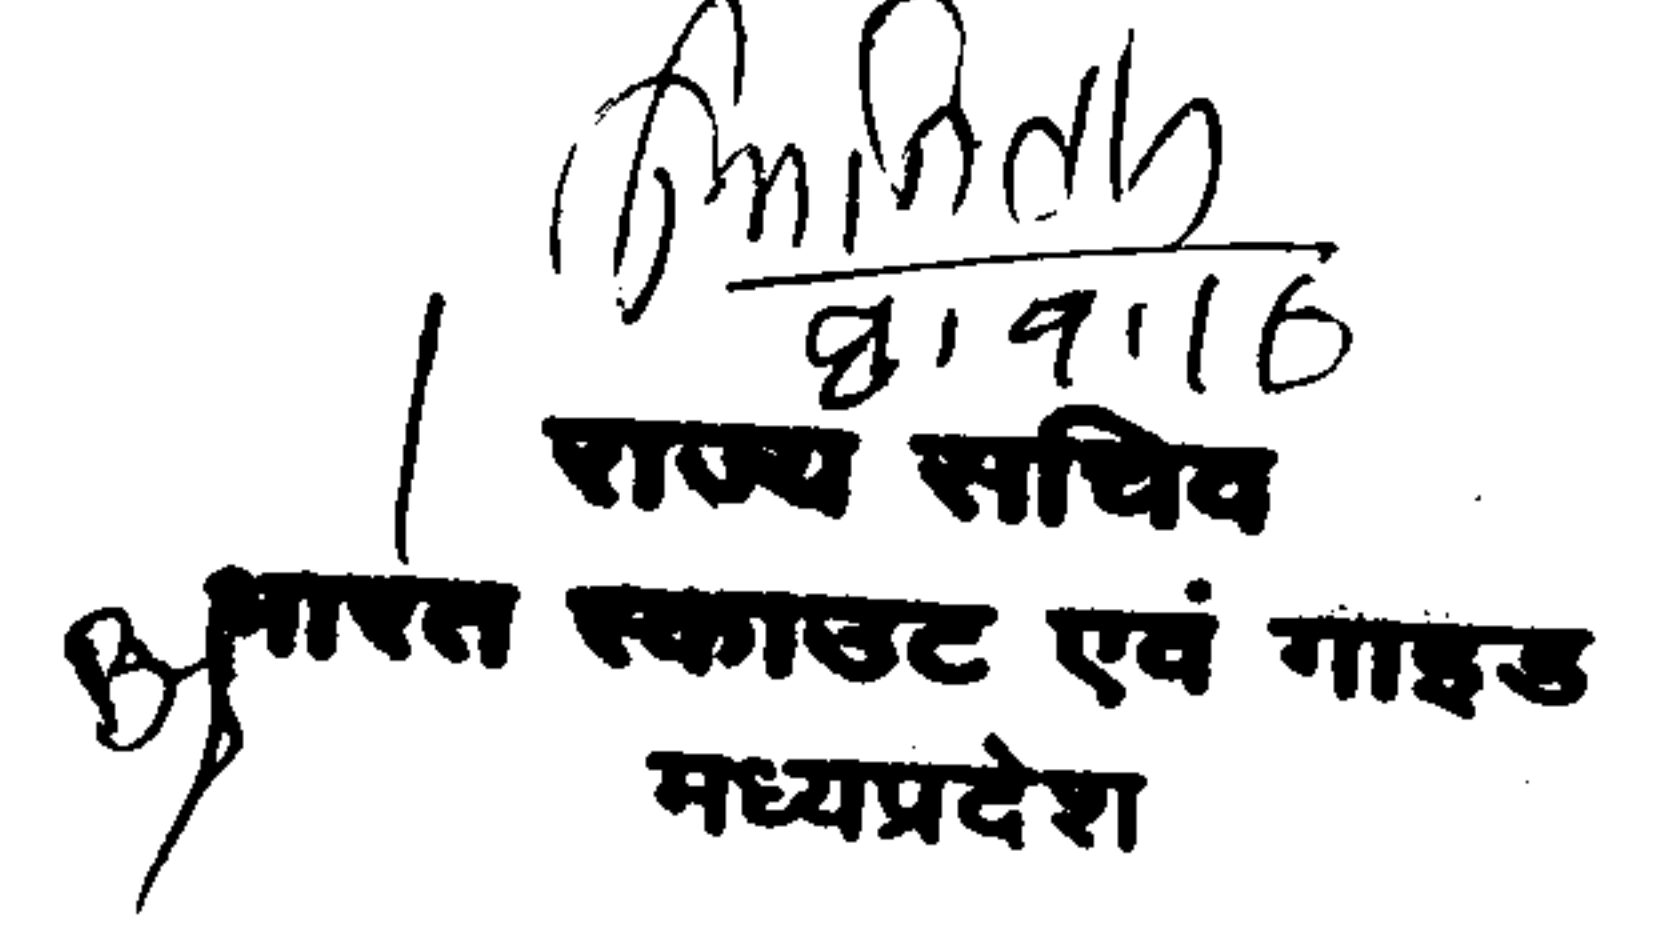 8.9.16
राज्य सचिव
भारत स्काउट एवं गाइड
मध्यप्रदेश